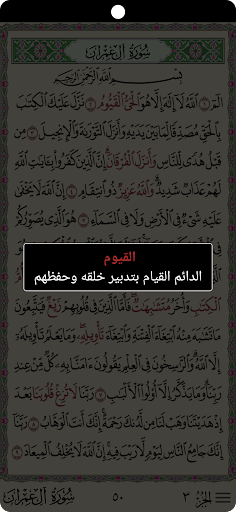 سُورَةُ آلِ عِمْرَانَ
بِسْمِ اللَّهِ الرَّحْمَٰنِ الرَّحِيمِ
الٓمٓ ١ اللَّهُ لَا إِلَٰهَ إِلَّا هُوَ الْحَيُّ الْقَيُّومُ ٢ نَزَّلَ عَلَيْكَ الْكِتَٰبَ
بِالْحَقِّ مُصَدِّقًا لِّمَا بَيْنَ يَدَيْهِ وَأَنزَلَ التَّوْرَىٰةَ وَالْإِنجِيلَ ٣ مِن
قَبْلُ هُدًى لِّلنَّاسِ وَأَنزَلَ الْفُرْقَانَ إِنَّ الَّذِينَ كَفَرُوا بِـَٔايَٰتِ اللَّهِ
لَهُمْ عَذَابٌ شَدِيدٌ وَاللَّهُ عَزِيزٌ ذُو انتِقَامٍ ٤ إِنَّ اللَّهَ لَا يَخْفَىٰ
عَلَيْهِ شَيْءٌ فِي الْأَرْضِ وَلَا فِي السَّمَاءِ ٥ هُوَ الَّذِي يُصَوِّرُكُمْ
القيوم
الدائم القيام بتدبير خلقه وحفظهم
الْكِتَٰبِ وَأُخَرُ مُتَشَٰبِهَٰتٌ فَأَمَّا الَّذِينَ فِي قُلُوبِهِمْ زَيْغٌ فَيَتَّبِعُونَ
مَا تَشَٰبَهَ مِنْهُ ابْتِغَاءَ الْفِتْنَةِ وَابْتِغَاءَ تَأْوِيلِهِ وَمَا يَعْلَمُ تَأْوِيلَهُ
إِلَّا اللَّهُ وَالرَّٰسِخُونَ فِي الْعِلْمِ يَقُولُونَ ءَامَنَّا بِهِ كُلٌّ مِّنْ عِندِ
رَبِّنَا وَمَا يَذَّكَّرُ إِلَّا أُولُوا الْأَلْبَٰبِ ٧ رَبَّنَا لَا تُزِغْ قُلُوبَنَا بَعْدَ
إِذْ هَدَيْتَنَا وَهَبْ لَنَا مِن لَّدُنكَ رَحْمَةً إِنَّكَ أَنتَ الْوَهَّابُ ٨ رَبَّنَا
إِنَّكَ جَامِعُ النَّاسِ لِيَوْمٍ لَّا رَيْبَ فِيهِ إِنَّ اللَّهَ لَا يُخْلِفُ الْمِيعَادَ ٩
الجزء ٣
٥٠
سُورَةُ آلِ عِمْرَانَ